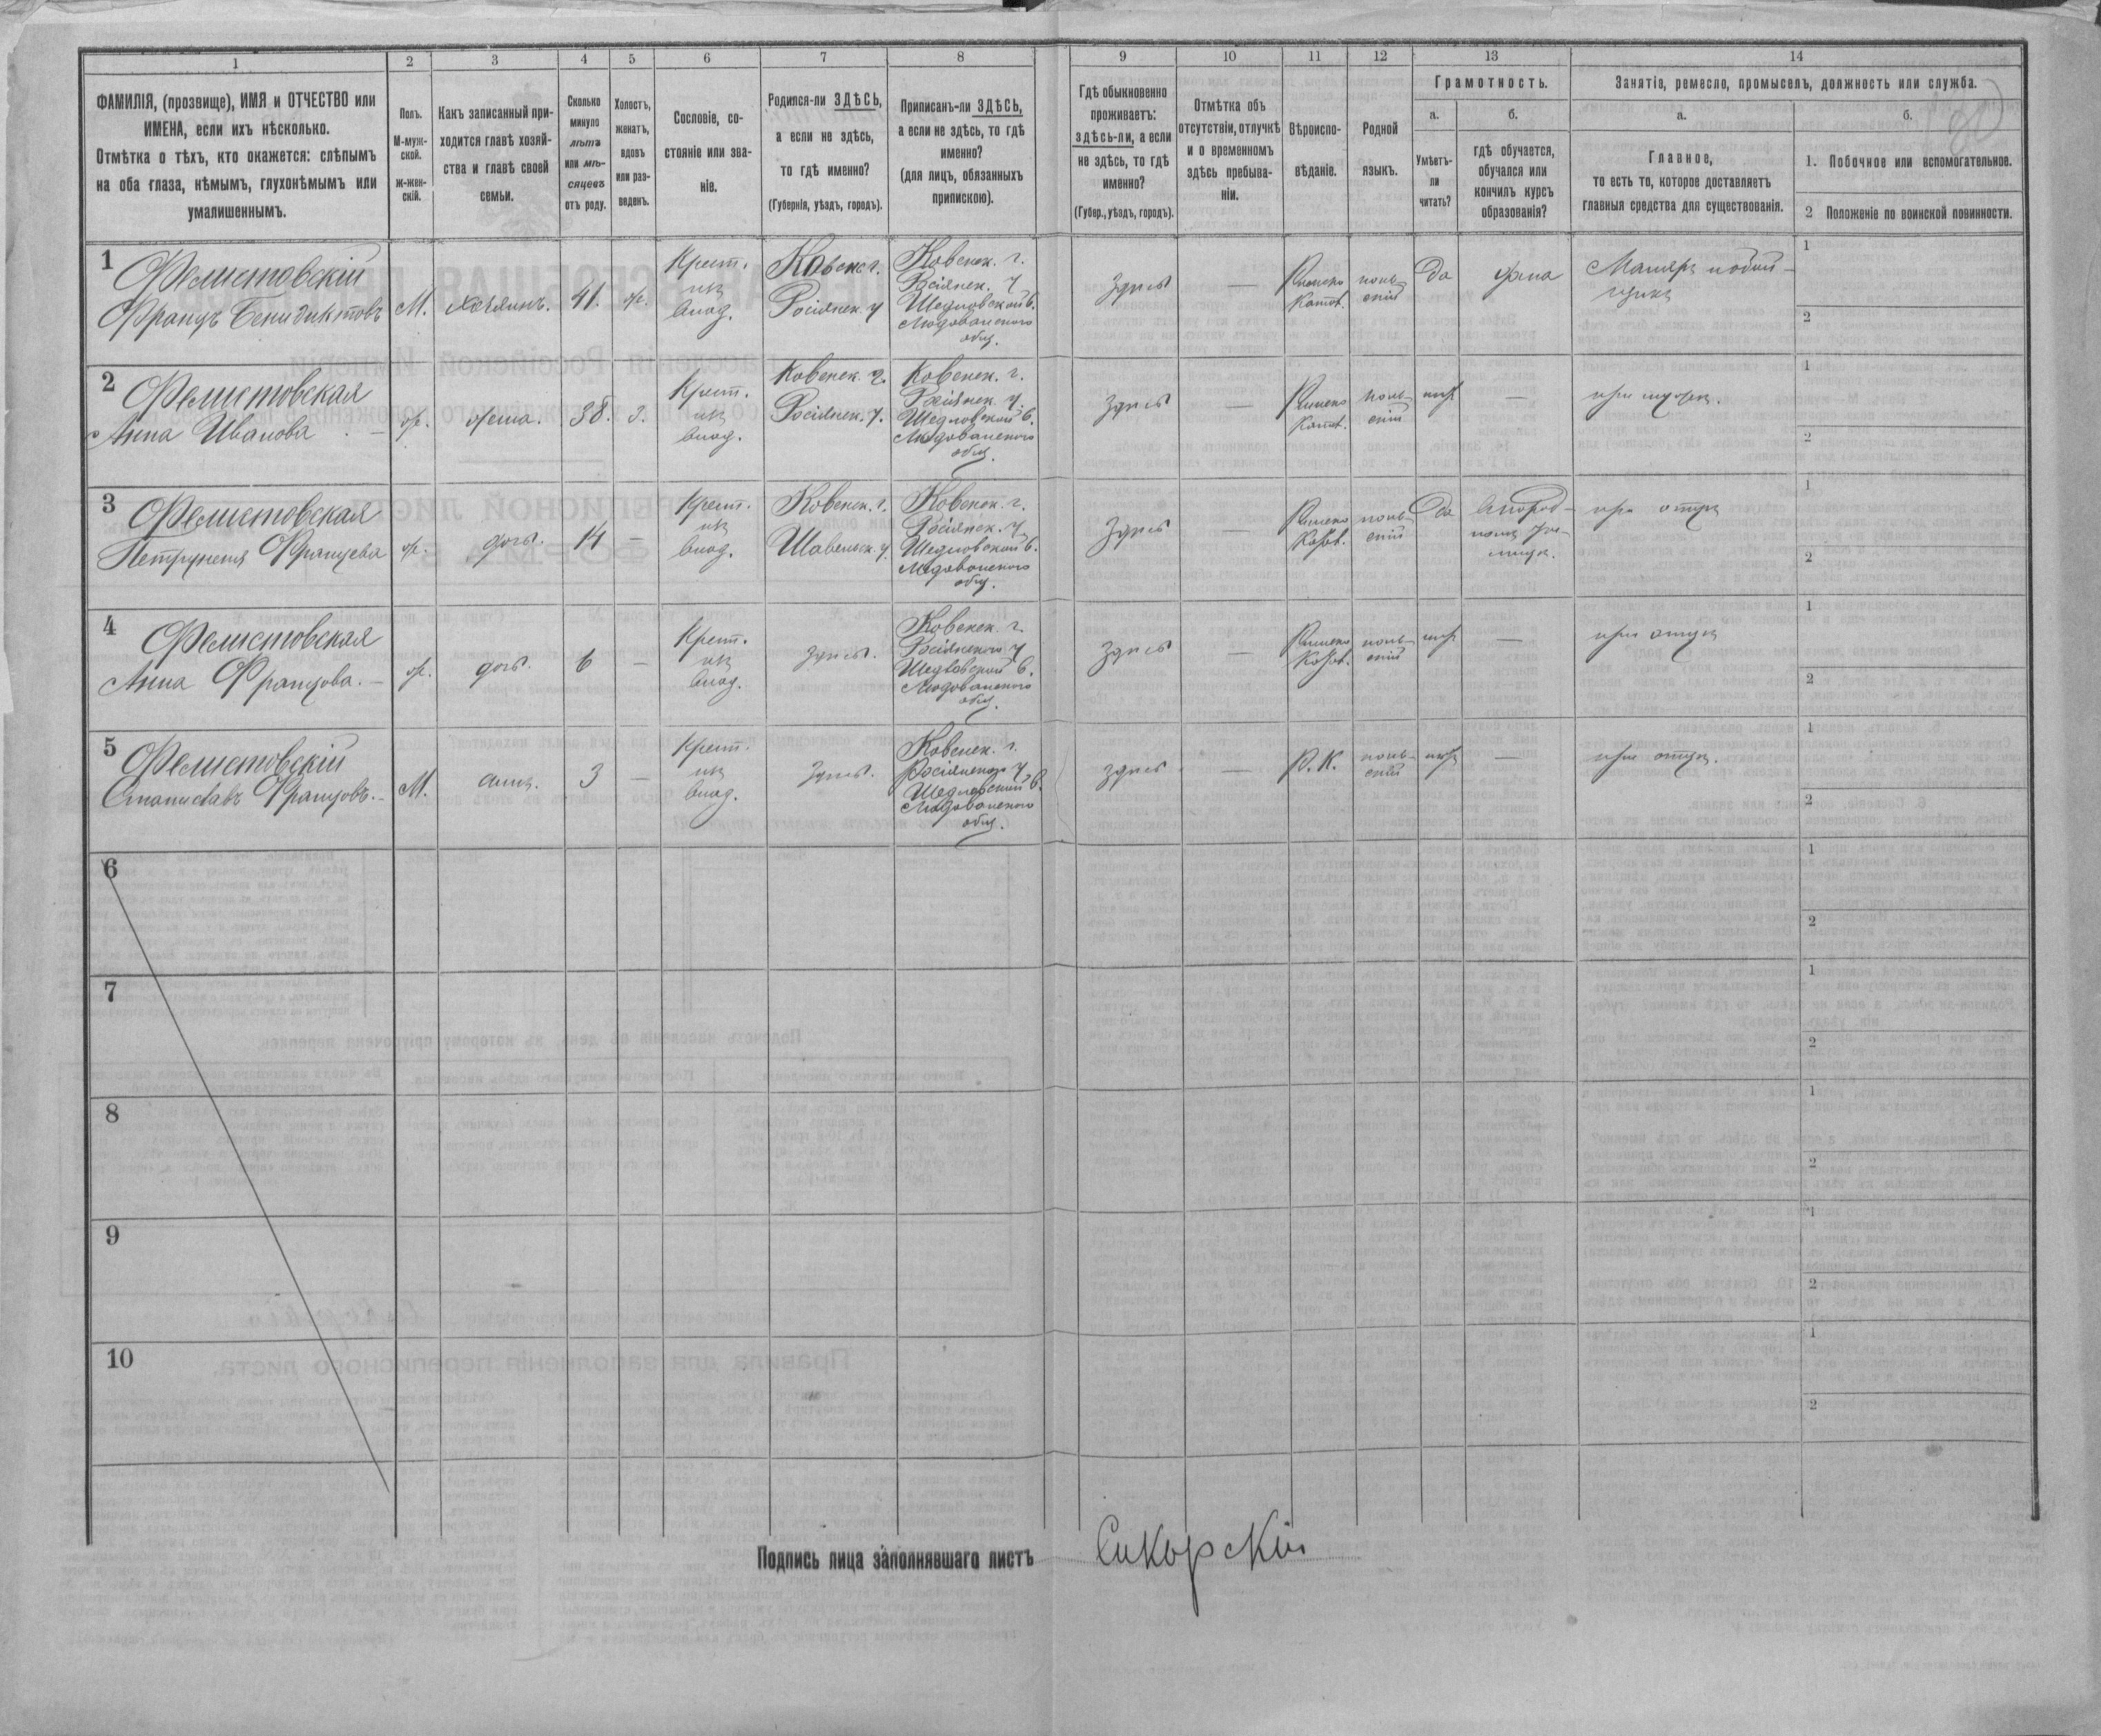 1
2
3
4
5
6
7
8
9
10
11
12
13
14
ФАМИЛІЯ, (прозвище), ИМЯ и ОТЧЕСТВО или
ИМЕНА, если ихъ нѣсколько.
Отмѣтка о тѣхъ, кто окажется: слѣпымъ
на оба глаза, нѣмымъ, глухонѣмымъ или
умалишеннымъ.
Полъ.
М-муж-
ской.
ж-жен-
скій.
Какъ записанный при-
ходится главѣ хозяй-
ства и главѣ своей
семьи.
Сколько
минуло
лѣтъ
или мѣ-
сяцевъ
отъ роду.
Холостъ,
женатъ,
вдовъ
или раз-
веденъ.
Сословіе, со-
стояніе или зва-
ніе.
Родился-ли ЗДѢСЬ,
а если не здѣсь,
то гдѣ именно?
(Губернія, уѣздъ, городъ).
Приписанъ-ли ЗДѢСЬ,
а если не здѣсь, то гдѣ
именно?
(для лицъ, обязанныхъ
припискою).
Гдѣ обыкновенно
проживаетъ:
здѣсь-ли, а если
не здѣсь, то гдѣ
именно?
(Губер., уѣздъ, городъ).
Отмѣтка объ
отсутствіи, отлучкѣ
и о временномъ
здѣсь пребыва-
ніи.
Вѣроиспо-
вѣданіе.
Родной
языкъ.
Грамотность.
а.
Умѣетъ-
ли
читать?
б.
гдѣ обучается,
обучался или
кончилъ курсъ
образованія?
Занятіе, ремесло, промыселъ, должность или служба.
а.
Главное,
то есть то, которое доставляетъ
главныя средства для существованія.
б.
1. Побочное или вспомогательное.
2 Положеніе по воинской повинности.
1
Фелистовскій
Францъ Бенидиктовъ
М.
хозяинъ.
41.
ж.
Крест.
изъ
влад.
Ковенс г.
Росіянск. у
Ковенск. г.
Росіянск. у
Шедловской в.
Людованского
общ.
здѣсь
—
Римско
Катол.
поль-
скій
да
дома
Маляръ
1
2
2
Фелистовская
Анна Иванова
ж.
жена.
38.
з.
Крест.
изъ
влад.
Ковенск. г.
Росіянск. у.
Ковенск. г.
Росіянск. у.
Шедловской в.
Людованского
общ.
здѣсь
—
Римско
Катол.
поль-
скій
нѣт
—
при мужѣ.
1
2
3
Фелистовская
Петрунеля Францева
ж.
дочь.
14
—
Крест.
изъ
влад.
Ковенск. г.
Шавельск. у.
Ковенск. г.
Росіянск. у
Шедловской в.
Людованского
общ.
здѣсь
—
Римско
Катол.
поль-
скій
да
при отцѣ
1
2
4
Фелистовская
Анна Францова.
ж.
дочь.
6
—
Крест.
изъ
влад.
здѣсь.
Ковенск. г.
Росіянского у
Шедловской в.
Людованского
общ.
здѣсь
—
Римско
Катол.
поль-
скій
нѣт
—
при отцѣ
1
2
5
Фелистовскій
Станиславъ Францовъ.
М.
сынъ.
3
—
Крест.
изъ
влад.
Здѣсь.
Ковенск. г.
Росіянского у
Шедловской в.
Людованского
общ.
здѣсь
—
Р. К.
поль-
скій
нѣт
—
при отцѣ.
1
2
6
1
2
7
1
2
8
1
2
9
1
2
10
1
2
Подпись лица заполнявшаго листъ
Сикорскій